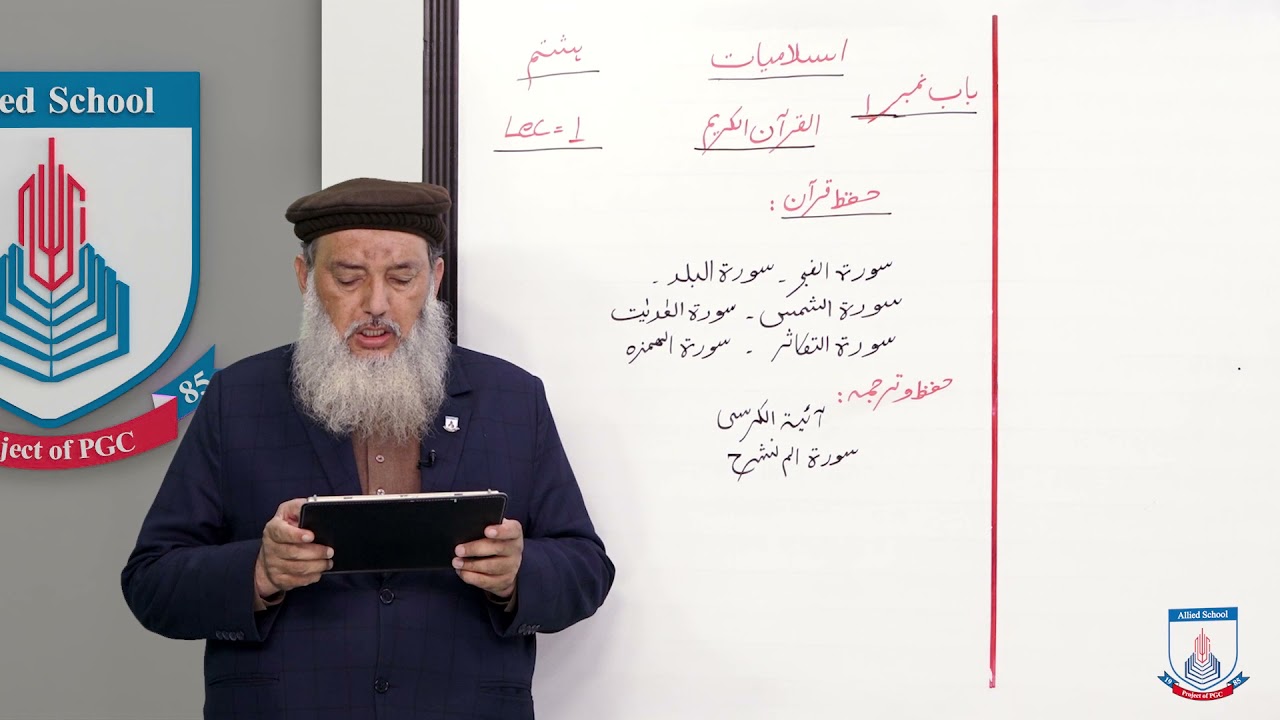 اسلامیات
ہشتم
باب نمبر ۱
القرآن الکریم
Lec = 1
حفظ قرآن :
سورۃ الفجر ۔ سورۃ البلد ۔
سورۃ الشمس ۔ سورۃ العٰدیٰت
سورۃ التکاثر ۔ سورۃ الھمزہ
حفظ و ترجمہ :
آئیۃ الکرسی
سورۃ الم نشرح
ed School
85
ject of PGC
Allied School
19 85
Project of PGC